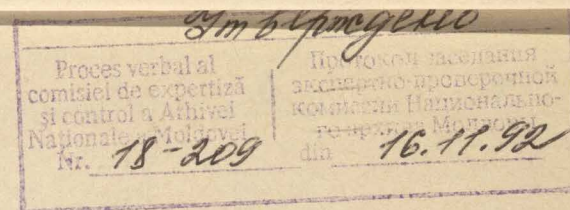 Утверждено
Proces verbal al
comisiei de expertiză
şi control a Arhivei
Naţionale a Moldovei
Протокол заседания
экспертно-проверочной
комиссии Национально-
го архива Молдовы
Nr. 18-209 din 16.11.92